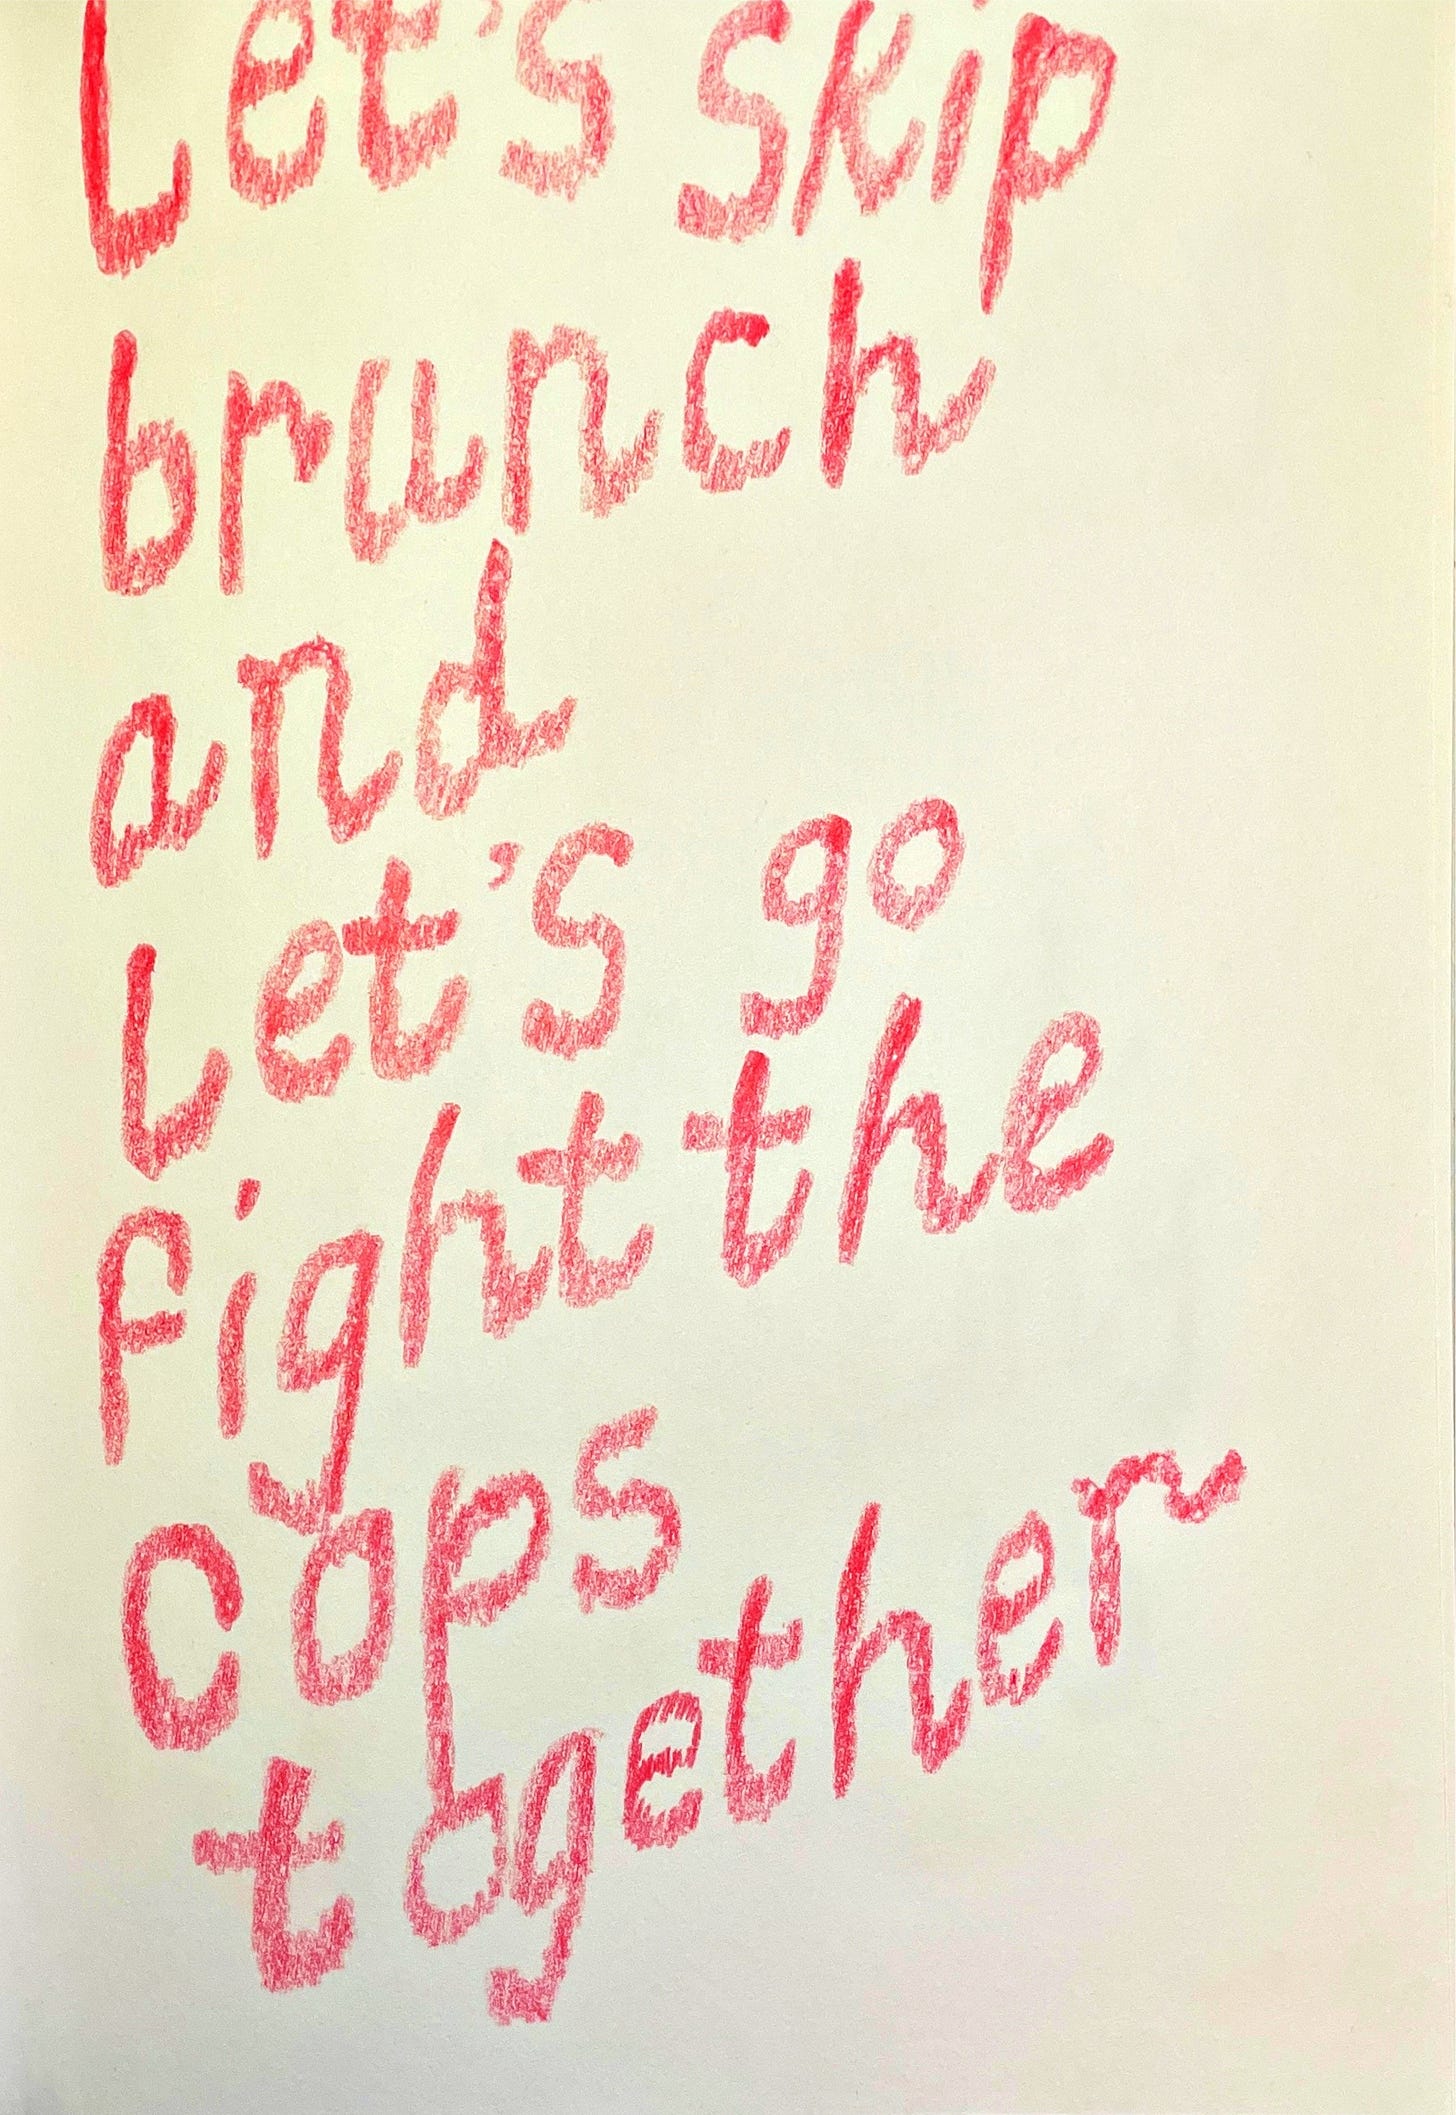 Let's skip
brunch
and
Let's go
fight the
cops
together